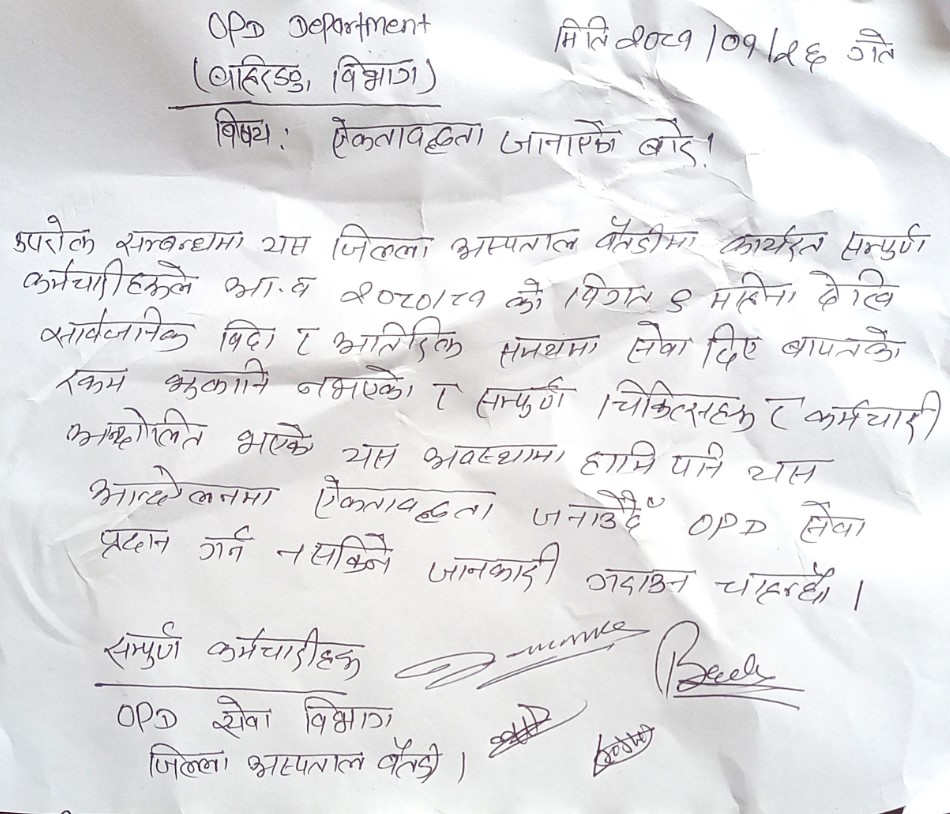 OPD Department
मिति २०८१/०१/२६ गते
(बहिरङ्ग विभाग)
विषय: ऐक्तावद्धता जानाएको बारे!
उपरोक्त सम्बन्धमा यस जिल्ला अस्पताल बैतडीमा कार्यरत सम्पुर्ण
कर्मचारीहरूले आ.व २०८०/८१ को विगत ९ महिना देखि
सार्वजानिक विदा र अतिरिक्त समयमा सेवा दिए बापतको
रकम भुक्तानि नभएको र सम्पुर्ण चिकित्सहरू र कर्मचारी
आन्दोलित भएको यस अवस्थामा हामि पनि यस
आन्दोलनमा ऐक्तावद्धता जनाउँदै OPD सेवा
प्रदान गर्न नसकिने जानकारी गराउन चाहन्छौ।
सम्पुर्ण कर्मचारीहरू
OPD सेवा विभाग
जिल्ला अस्पताल बैतडी।